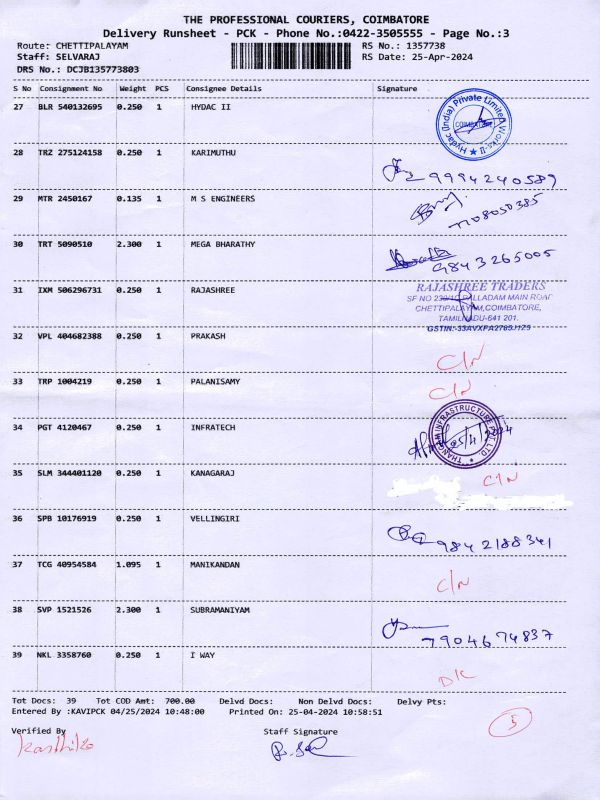 THE PROFESSIONAL COURIERS, COIMBATORE
Delivery Runsheet - PCK - Phone No.:0422-3505555 - Page No.:3
Route: CHETTIPALAYAM RS No.: 1357738
Staff: SELVARAJ RS Date: 25-Apr-2024
DRS No.: DCJB135773803
S No Consignment No Weight PCS Consignee Details Signature
27 BLR 540132695 0.250 1 HYDAC II
Hydac (India) Private Limited Works-II
COIMBATORE
28 TRZ 275124158 0.250 1 KARIMUTHU
9994240589
29 MTR 2450167 0.135 1 M S ENGINEERS
30 TRT 5090510 2.300 1 MEGA BHARATHY
9843265005
31 IXM 506296731 0.250 1 RAJASHREE
RAJASHREE TRADERS
SF NO PALLADAM MAIN ROAD
CHETTIPALAYAM,COIMBATORE,
TAMILNADU-641 201.
32 VPL 404682388 0.250 1 PRAKASH
C/N
33 TRP 1004219 0.250 1 PALANISAMY
C/N
34 PGT 4120467 0.250 1 INFRATECH
THANGAM INFRASTRUCTURE PVT. LTD.
35 SLM 344401120 0.250 1 KANAGARAJ
C/N
36 SPB 10176919 0.250 1 VELLINGIRI
9842188341
37 TCG 40954584 1.095 1 MANIKANDAN
C/N
38 SVP 1521526 2.300 1 SUBRAMANIYAM
7904674837
39 NKL 3358760 0.250 1 I WAY
Tot Docs: 39 Tot COD Amt: 700.00 Delvd Docs: Non Delvd Docs: Delvy Pts:
Entered By :KAVIPCK 04/25/2024 10:48:00 Printed On: 25-04-2024 10:58:51
5
Verified By Staff Signature